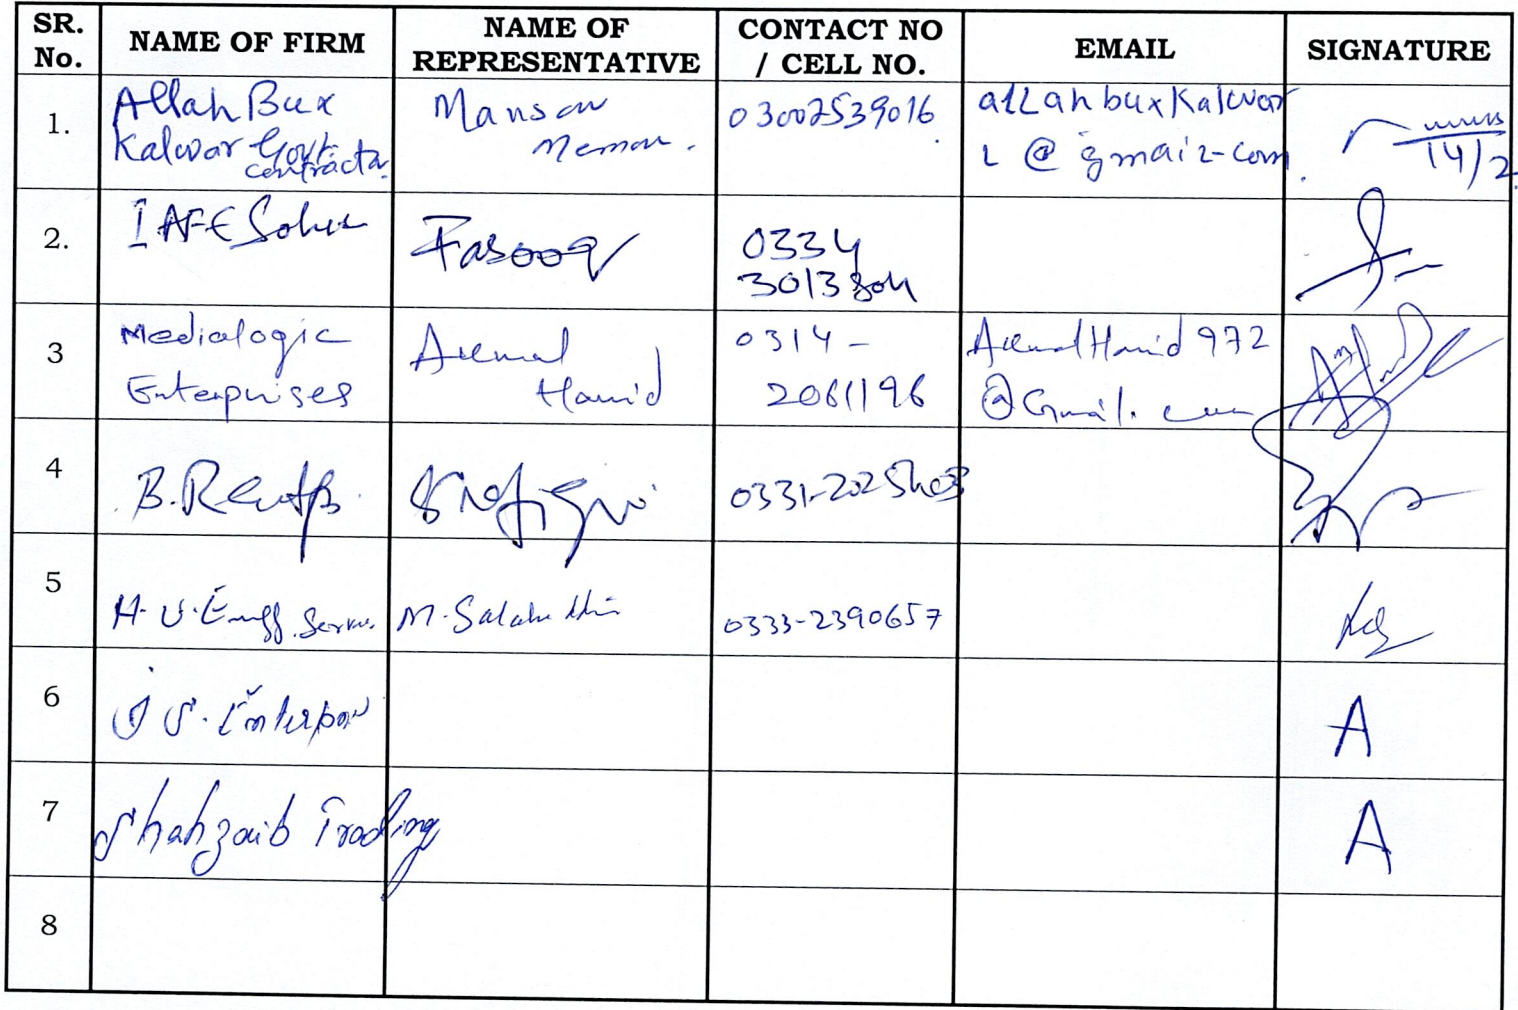 SR. No.
NAME OF FIRM
NAME OF REPRESENTATIVE
CONTACT NO / CELL NO.
EMAIL
SIGNATURE
1.
Allah Bux
Kalwar Govt.
Contractor
Mansoor
Memon.
03002539016
alLahbuxKalwar
1 @ gmail.com
14/2
2.
IAFE
Farooq
0334
3013804
3
Medialogic
Enterprises
Hamid
0314 -
2061196
Hamid 972
@ Gmail.
4
B.
5
H. U. Engg. Serv.
M. Salahuddin
0333-2390657
6
S.
A
7
Shahzaib Trading
A
8